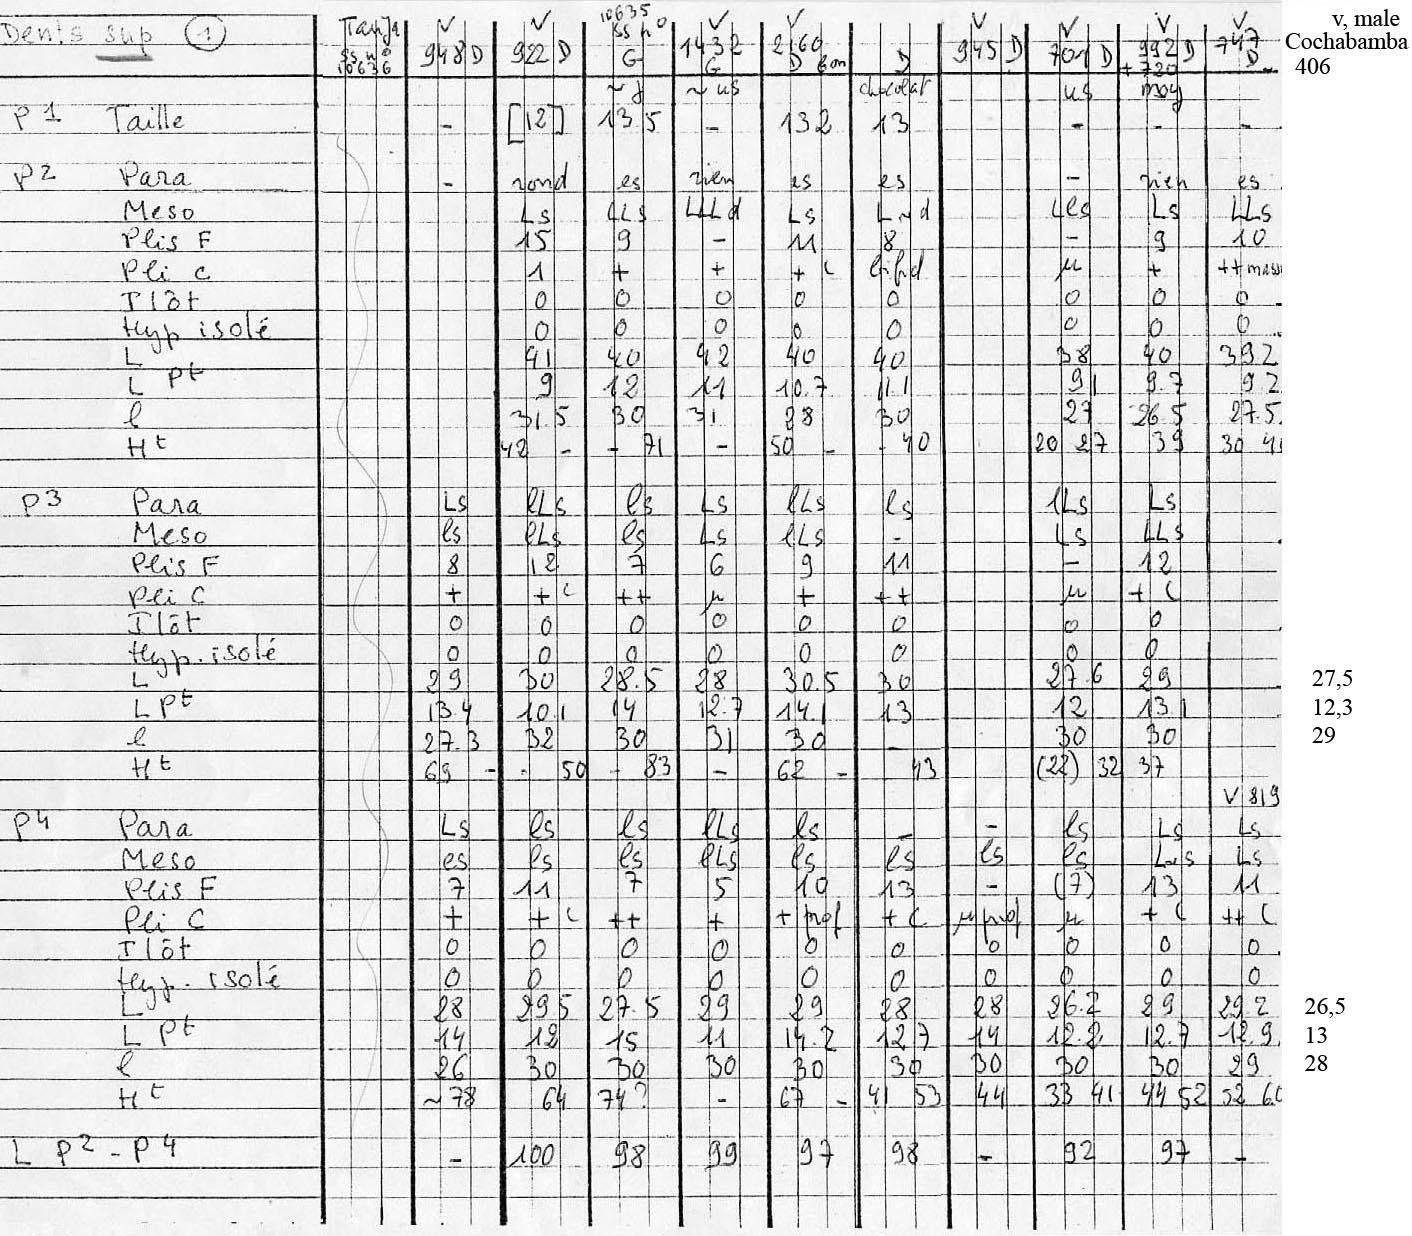 Dents sup 1 Tarija ss n° 10636 V 948 D V 922 D 10635 ss n° G V 1432 G V 2160 D bon D V 945 D V 701 D V 992 D + 720 V 747 D v, male Cochabamba 406
~ j ~ us chocolat us moy
P1 Taille - [12] 13 5 - 132 13 - - -
P2 Para - rond es rien es es - rien es
Meso Ls LLs LLLd Ls L~d Lls Ls LLs
Plis F 15 9 - 11 8 - 9 10
Pli C 1 + + + C bifid µ + ++ mass
Ilôt 0 0 0 0 0 0 0 0
Hyp isolé 0 0 0 0 0 0 0 0
L 41 40 42 40 40 38 40 39.2
L pt 9 12 11 10.7 11.1 9,1 9.7 9.2
l 31.5 30 31 28 30 27 26.5 27.5
Ht 42 - - 71 - 50 - - 40 20 27 39 30
P3 Para Ls lLs ls Ls lLs ls lLs Ls
Meso ls lLs ls Ls lLs - Ls LLs
Plis F 8 12 7 6 9 11 - 12
Pli C + + C ++ µ + ++ µ + C
Ilôt 0 0 0 0 0 0 0 0
Hyp. isolé 0 0 0 0 0 0 0 0
L 29 30 28.5 28 30.5 30 27.6 29 27,5
L pt 13.4 10.1 14 12.7 14.1 13 12 13.1 12,3
l 27.3 32 30 31 30 - 30 30 29
Ht 69 - - 50 - 83 - 62 - 43 (22) 32 37
V 819
P4 Para Ls ls ls lLs ls - - ls Ls Ls
Meso es ls ls lLs ls ls ls ls L~s Ls
Plis F 7 11 7 5 10 13 - (7) 13 11
Pli C + + C ++ + + prof + C µ prof µ + C ++ C
Ilôt 0 0 0 0 0 0 0 0 0 0
Hyp. isolé 0 0 0 0 0 0 0 0 0 0
L 28 29,5 27.5 29 29 28 28 26.2 29 29,2 26,5
L pt 14 12 15 11 14.2 12,7 14 12.2 12.7 12.9 13
l 26 30 30 30 30 30 30 30 30 29 28
Ht ~78 64 74? - 67 - 41 53 44 33 41 44 52 52
L P2 - P4 - 100 98 99 97 98 - 92 97 -